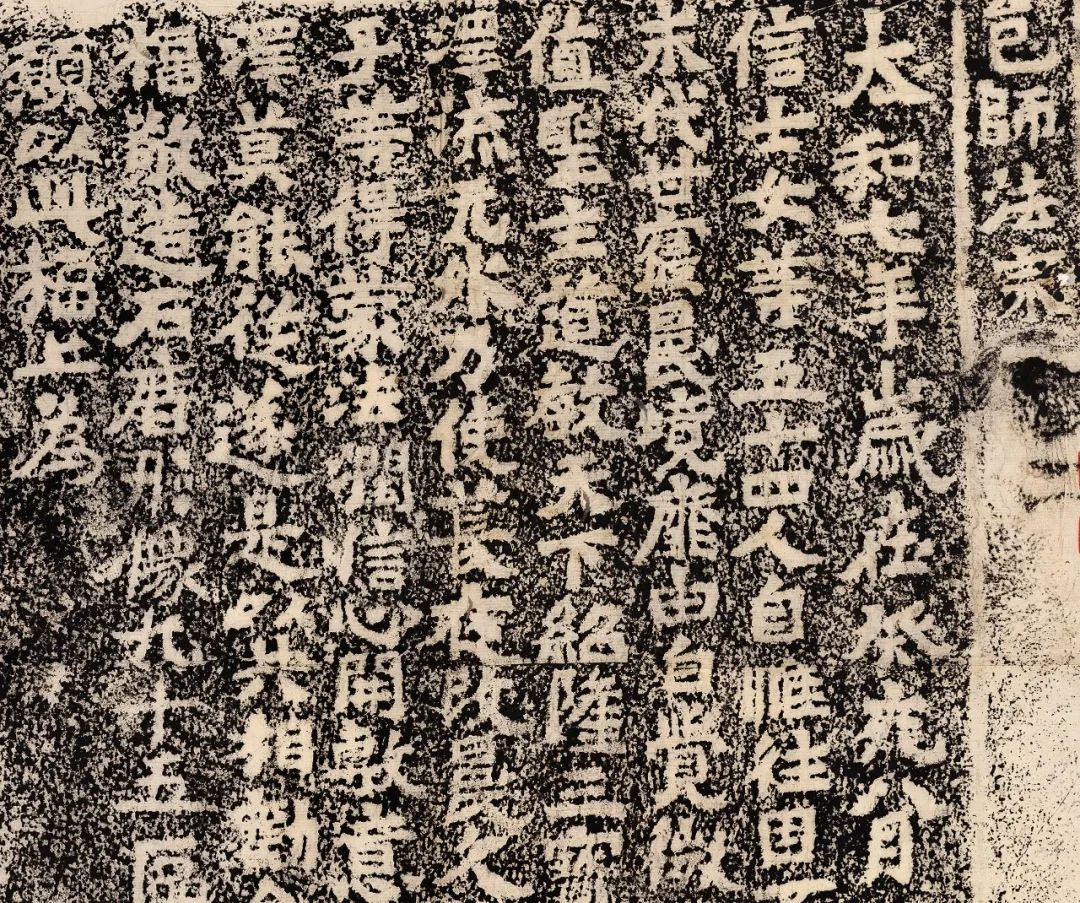 邑師法宗
太和七年歲在癸亥八月
信士女等五十四人自惟往因不
末代甘寢昏境靡由自覺微
值聖主道教天下紹隆三寶
澤流无外乃使長夜改昏久
子等得蒙法潤信心開敷意
澤莫能從遂是以共相勸合
福敬造石廟形像九十五區
願以此福上為